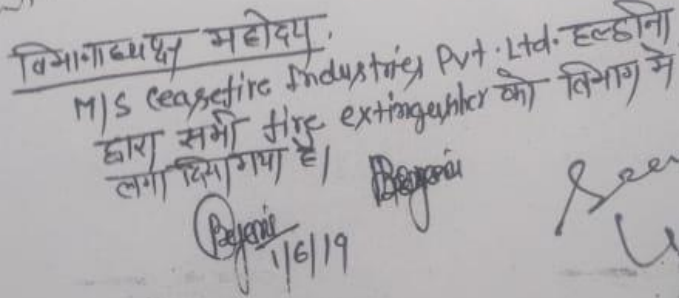 विभागाध्यक्ष महोदय,
M/S Ceasefire Industries Pvt. Ltd. हल्द्वानी
द्वारा सभी fire extinguisher को विभाग में
लगा दिया गया है।
1/6/19
See